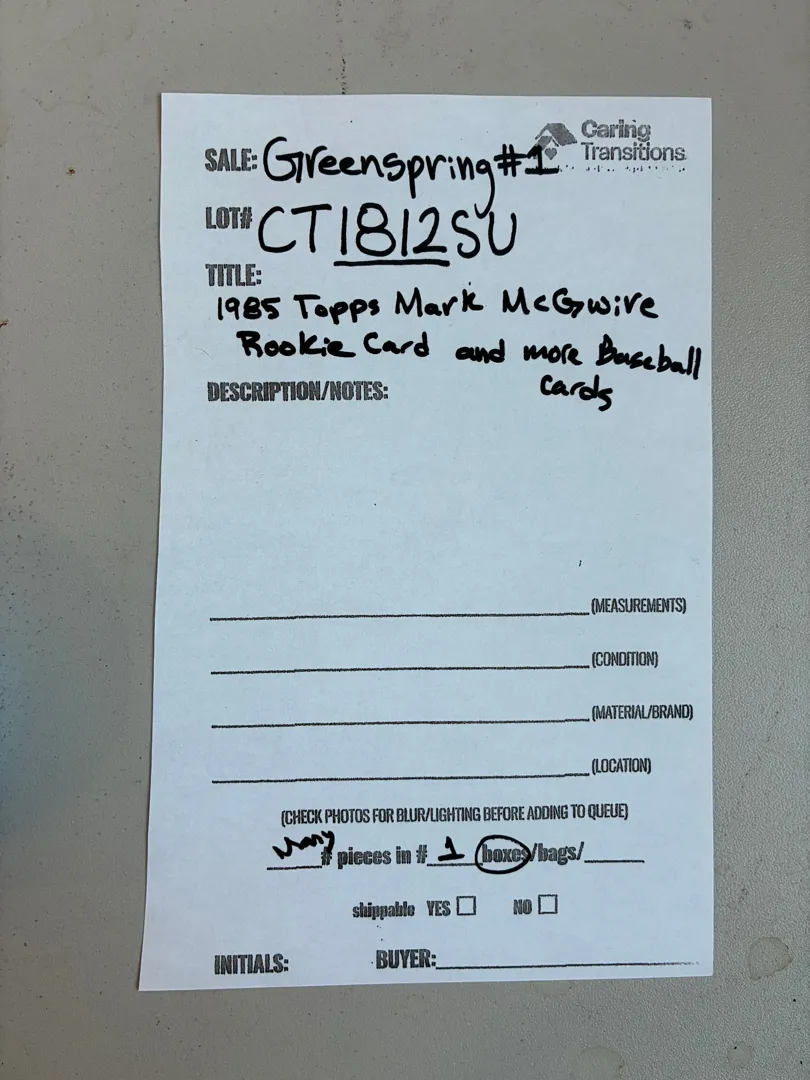 Caring
Transitions
SALE: Greenspring #1
LOT# CT1812SU
TITLE:
1985 Topps Mark McGwire
Rookie Card and more Baseball
Cards
DESCRIPTION/NOTES:
(MEASUREMENTS)
(CONDITION)
(MATERIAL/BRAND)
(LOCATION)
(CHECK PHOTOS FOR BLUR/LIGHTING BEFORE ADDING TO QUEUE)
Many # pieces in # 1 boxes/bags/
shippable YES NO
INITIALS: BUYER: